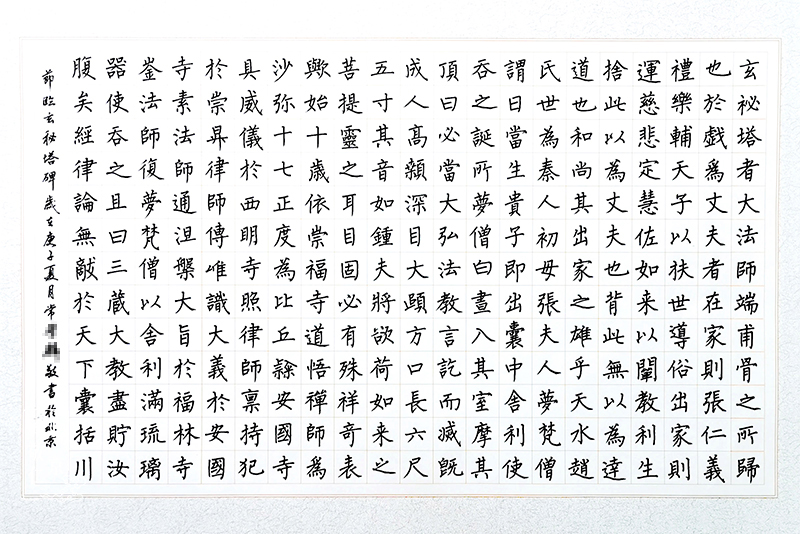 玄祕塔者大法師端甫骨之所歸
也於戲爲丈夫者在家則張仁義
禮樂輔天子以扶世導俗出家則
運慈悲定慧佐如来以闡教利生
捨此以為丈夫也背此無以為達
道也和尚其出家之雄乎天水趙
氏世為秦人初母張夫人夢梵僧
謂曰當生貴子即出囊中舍利使
吞之誕所夢僧白晝入其室摩其
頂曰必當大弘法教言訖而滅既
成人高顙深目大頤方口長六尺
五寸其音如鍾夫將欲荷如来之
菩提靈之耳目固必有殊祥奇表
歟始十歲依崇福寺道悟禪師爲
沙弥十七正度為比丘隸安國寺
具威儀於西明寺照律師禀持犯
於崇昇律師傳唯識大義於安國
寺素法師通涅槃大旨於福林寺
崟法師復夢梵僧以舍利滿琉璃
器使吞之且曰三藏大教盡貯汝
腹矣經律論無敵於天下囊括川
節臨玄秘塔碑歲在庚子夏月常敬書於北京